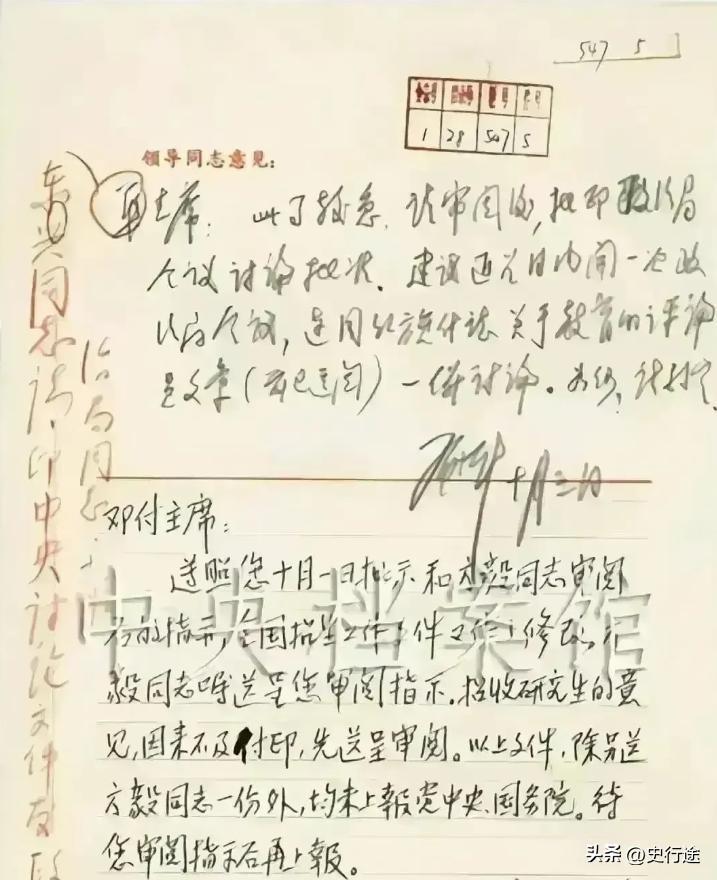 547 5
1 28 547 5
领导同志意见：
华主席：此事较急，请审阅后，批印政治局
会议讨论批准。建议近几日内开一次政
治局会议，连同红旗
关于教育的评论
员文章（前已送阅）一併讨论。如何，请批示
十月三日
东兴同志：请印中央讨论文件发政
治局同志
邓付主席：
遵照您十月一日批示和方毅同志审阅
后的指示，全国招生工作文件又作了修改。方
毅同志嘱送呈您审阅指示。招收研究生的意
见，因来不及付印，先送呈审阅。以上文件，除另送
方毅同志一份外，均未上報党中央、国务院。待
您审阅指示后再上報。
中央档案馆
头条 @史行途